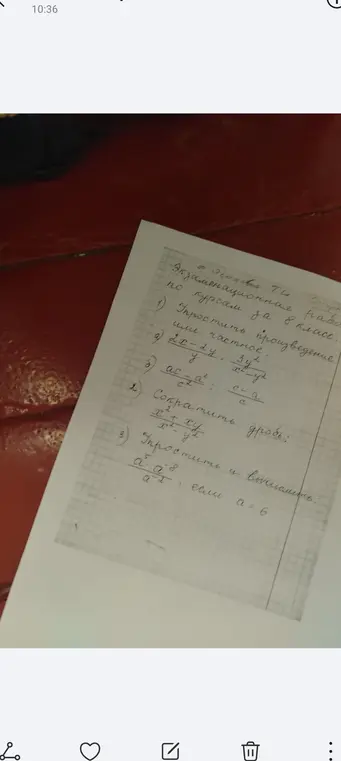 10:36
Экзаменационная
по курсам за 8 класс
1) Упростить произведение
или частное:
а) (2x - 2y)/y · 3y²/(x² - y²)
б) (ac - a²)/c² : (c - a)/c
2) Сократить дробь:
(x² + xy)/(x² - y²)
3) Упростить и вычислить
(a⁵ · a⁻⁸)/a⁻², если a = 6